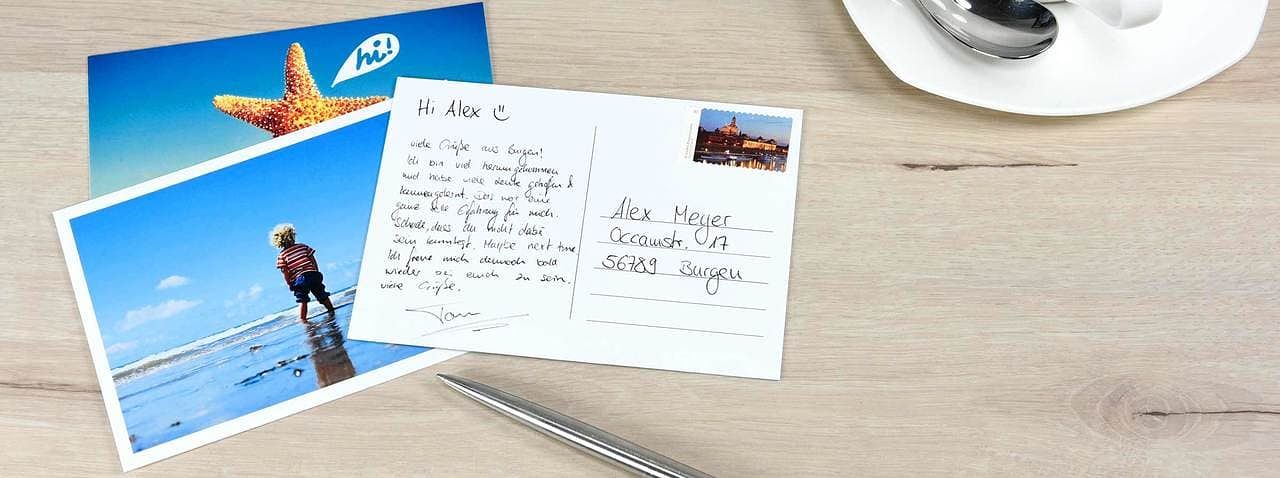 hi!
Hi Alex
viele Grüße aus Burgen!
Ich bin viel herumgekommen
und habe viele Leute getroffen &
kennengelernt. Das war eine
ganz tolle Erfahrung für mich.
Schade, dass du nicht dabei
sein konntest. Maybe next time
Ich freue mich dennoch bald
wieder bei euch zu sein.
viele Grüße.
Tom
Alex Meyer
Occamstr. 17
56789 Burgen